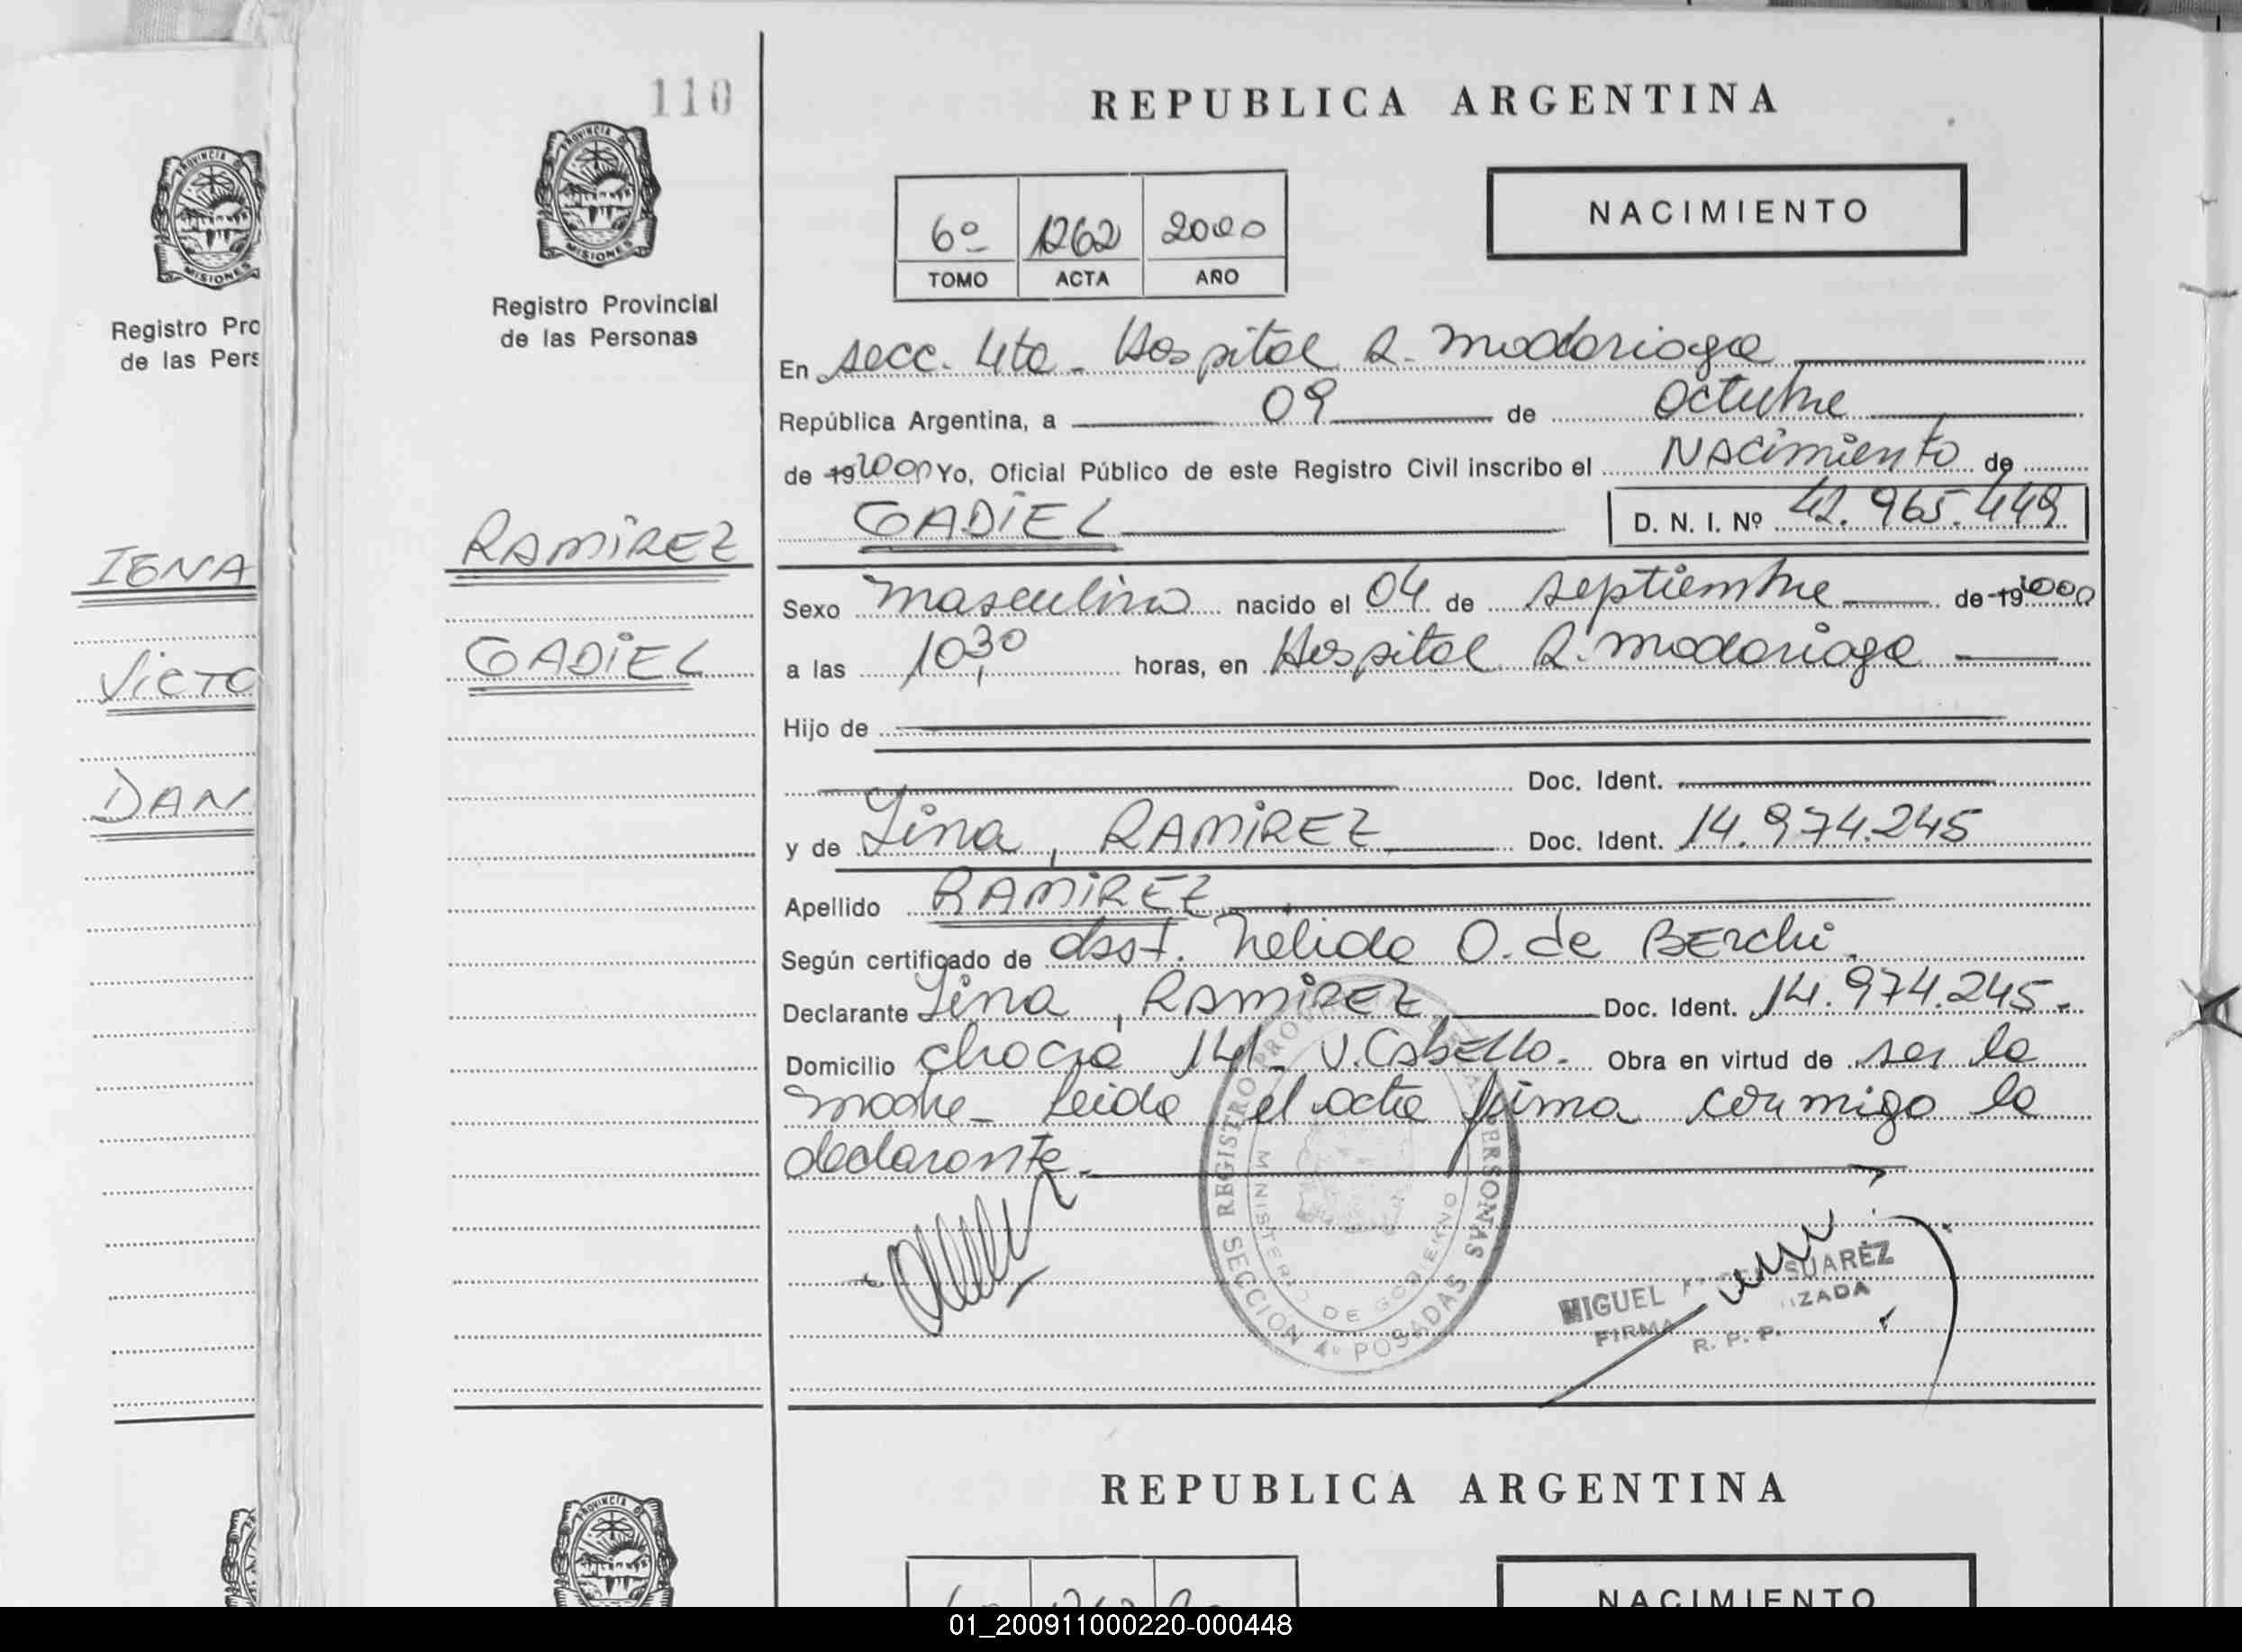 110
REPUBLICA ARGENTINA
PROVINCIA D
MISIONES
PROVINCIA
MISIONES
NACIMIENTO
6º 1262 2000
TOMO ACTA AÑO
Registro Pro
de las Pers
Registro Provincial
de las Personas
En secc. 4ta - Hospital R. Madariaga
República Argentina, a 09 de octubre
de 19 2000 Yo, Oficial Público de este Registro Civil inscribo el Nacimiento de
GADIEL
D. N. I. Nº 42.965.449
IGNA
RAMIREZ
Sexo masculino nacido el 04 de septiembre de 19 2000
VICTO
GADIEL
a las 10,30 horas, en Hospital R. Madariaga
Hijo de
Doc. Ident.
DAN
y de Lina, RAMIREZ Doc. Ident. 14.974.245
Apellido RAMIREZ
Según certificado de obst. Nélida O. de BERchi.
Declarante Lina, RAMIREZ Doc. Ident. 14.974.245.-
Domicilio chacra 141 - V. Cabello.- Obra en virtud de ser la
madre - Leida el acta firma conmigo la
declarante.-
REGISTRO PROVINCIAL DE LAS PERSONAS
MINISTERIO DE GOBIERNO
SECCION 4º POSADAS
MIGUEL SUAREZ
FIRMA IZADA
R. P. P.
REPUBLICA ARGENTINA
PROVINCIA D
NACIMIENTO
01_200911000220-000448